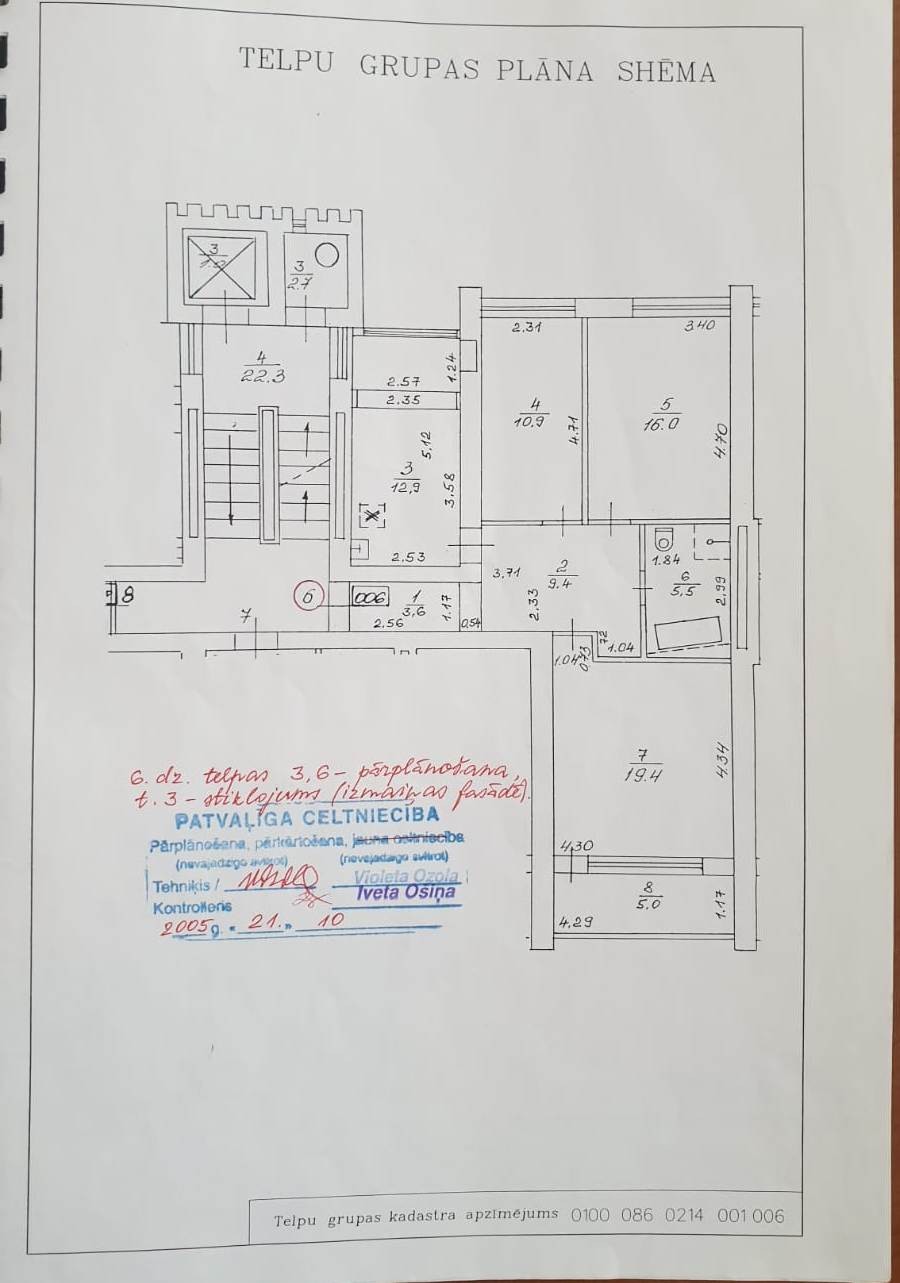 TELPU GRUPAS PLĀNA SHĒMA
3
3
2.7
4
22.3
2.57
1.24
2.35
2.31
3.40
4
10.9
4.71
5
16.0
4.70
5.12
3
12,9
3.58
2.53
3.71
2
9.4
2.33
1.84
6
5,5
2.99
8
7
6
006
1
3,6
1.17
2.56
0,54
1.04
0.73
72
1.04
7
19.4
4.34
4,30
8
5.0
1.17
4.29
6. dz. telpas 3,6 - pārplānošana,
t. 3 - stiklojums (izmaiņas fasādē).
PATVAĻĪGA CELTNIECĪBA
Pārplānošana, pārkārtošana, jauna celtniecība
(nevajadzīgo svītrot) (nevajadzīgo svītrot)
Tehniķis / Violeta Ozola
Iveta Ošiņa
Kontrolieris
2005 g. " 21. " 10
Telpu grupas kadastra apzīmējums 0100 086 0214 001 006